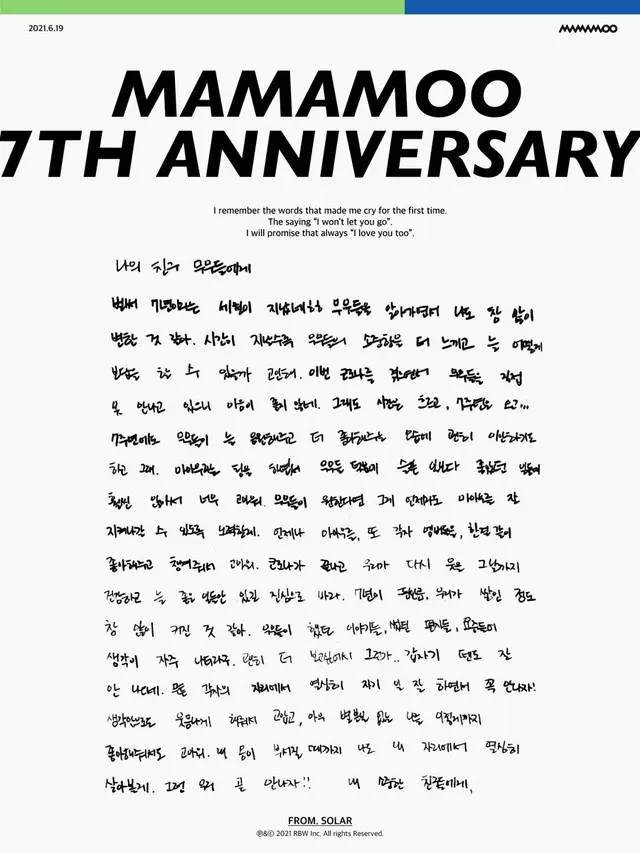 2021.6.19
MAMAMOO
MAMAMOO
7TH ANNIVERSARY
I remember the words that made me cry for the first time.
The saying “I won’t let you go”.
I will promise that always “I love you too”.
나의 친구 무무들에게
벌써 7년이라는 세월이 지났네ㅎㅎ 무무들을 알아가면서 나도 참 많이
변한 것 같아. 시간이 지날수록 무무들의 소중함을 더 느끼고 늘 어떻게
보답을 할 수 있을까 고민해. 이번 코로나를 겪으면서 무무들을 직접
못 만나고 있으니 마음이 좋지 않네. 그래도 시간은 흐르고, 7주년은 오고...
7주년에도 무무들이 늘 응원해주고 더 좋아해주는 모습에 괜히 미안하기도
하고 그래. 마마무라는 팀을 하면서 무무들 덕분에 슬픈 일보다 좋았던 일들이
훨씬 많아서 너무 고마워. 무무들이 원한다면 그게 마마무를 잘
지켜나갈 수 있도록 노력할게. 언제나 마마무를, 또 각자 멤버들을, 한결같이
좋아해주고 챙겨주어서 고마워. 코로나가 끝나고 우리가 다시 웃을 그날까지
건강하고 늘 좋은 일들만 있길 진심으로 바라. 7년이 우리가 쌓인 정도
참 많이 커진 것 같아. 무무들이 했던 이야기들, 편지들,
생각이 자주 나더라구. 괜히 더 보고싶어서 그런가.. 갑자기 잘
안 나네. 각자의 자리에서 열심히 자기 일 잘 하면서 꼭 만나자!
생각만으로도 웃음나게 해줘서 고맙고, 아무 없는 나를 이렇게까지
좋아해줘서도 고마워. 내 몸이 부서질 때까지 나도 내 자리에서 열심히
살아볼게. 그럼 우리 곧 만나자!! 내 소중한 친구들에게,
FROM. SOLAR
℗&© 2021 RBW Inc. All rights Reserved.